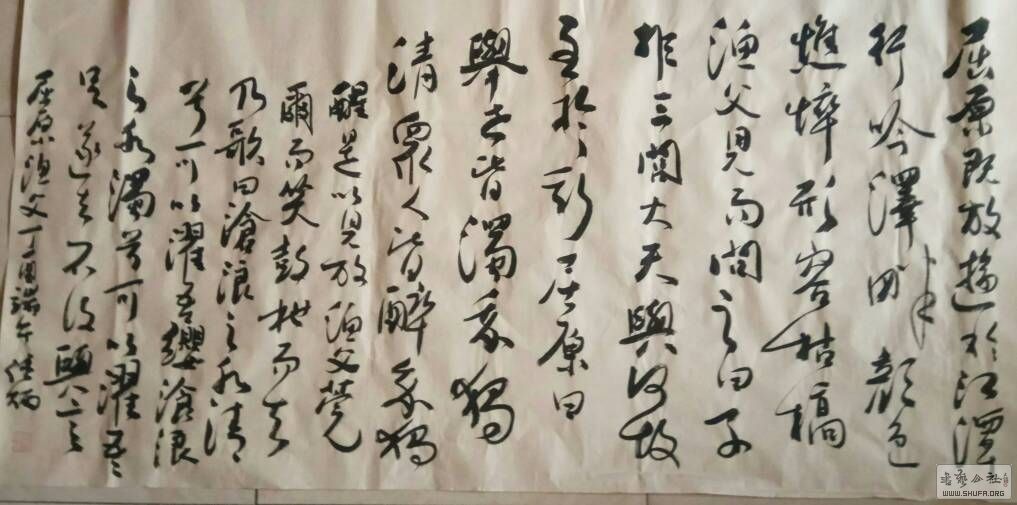 屈原既放遊於江潭
行吟澤畔顏色
憔悴形容枯槁
漁父見而問之曰子
非三閭大夫與何故
至於斯屈原曰
舉世皆濁我獨
清眾人皆醉我獨
醒是以見放漁父莞
爾而笑鼓枻而去
乃歌曰滄浪之水清
兮可以濯吾纓滄浪
之水濁兮可以濯吾
足遂去不復與言
屈原漁父丁酉端午
書藝公社
WWW.SHUFA.ORG